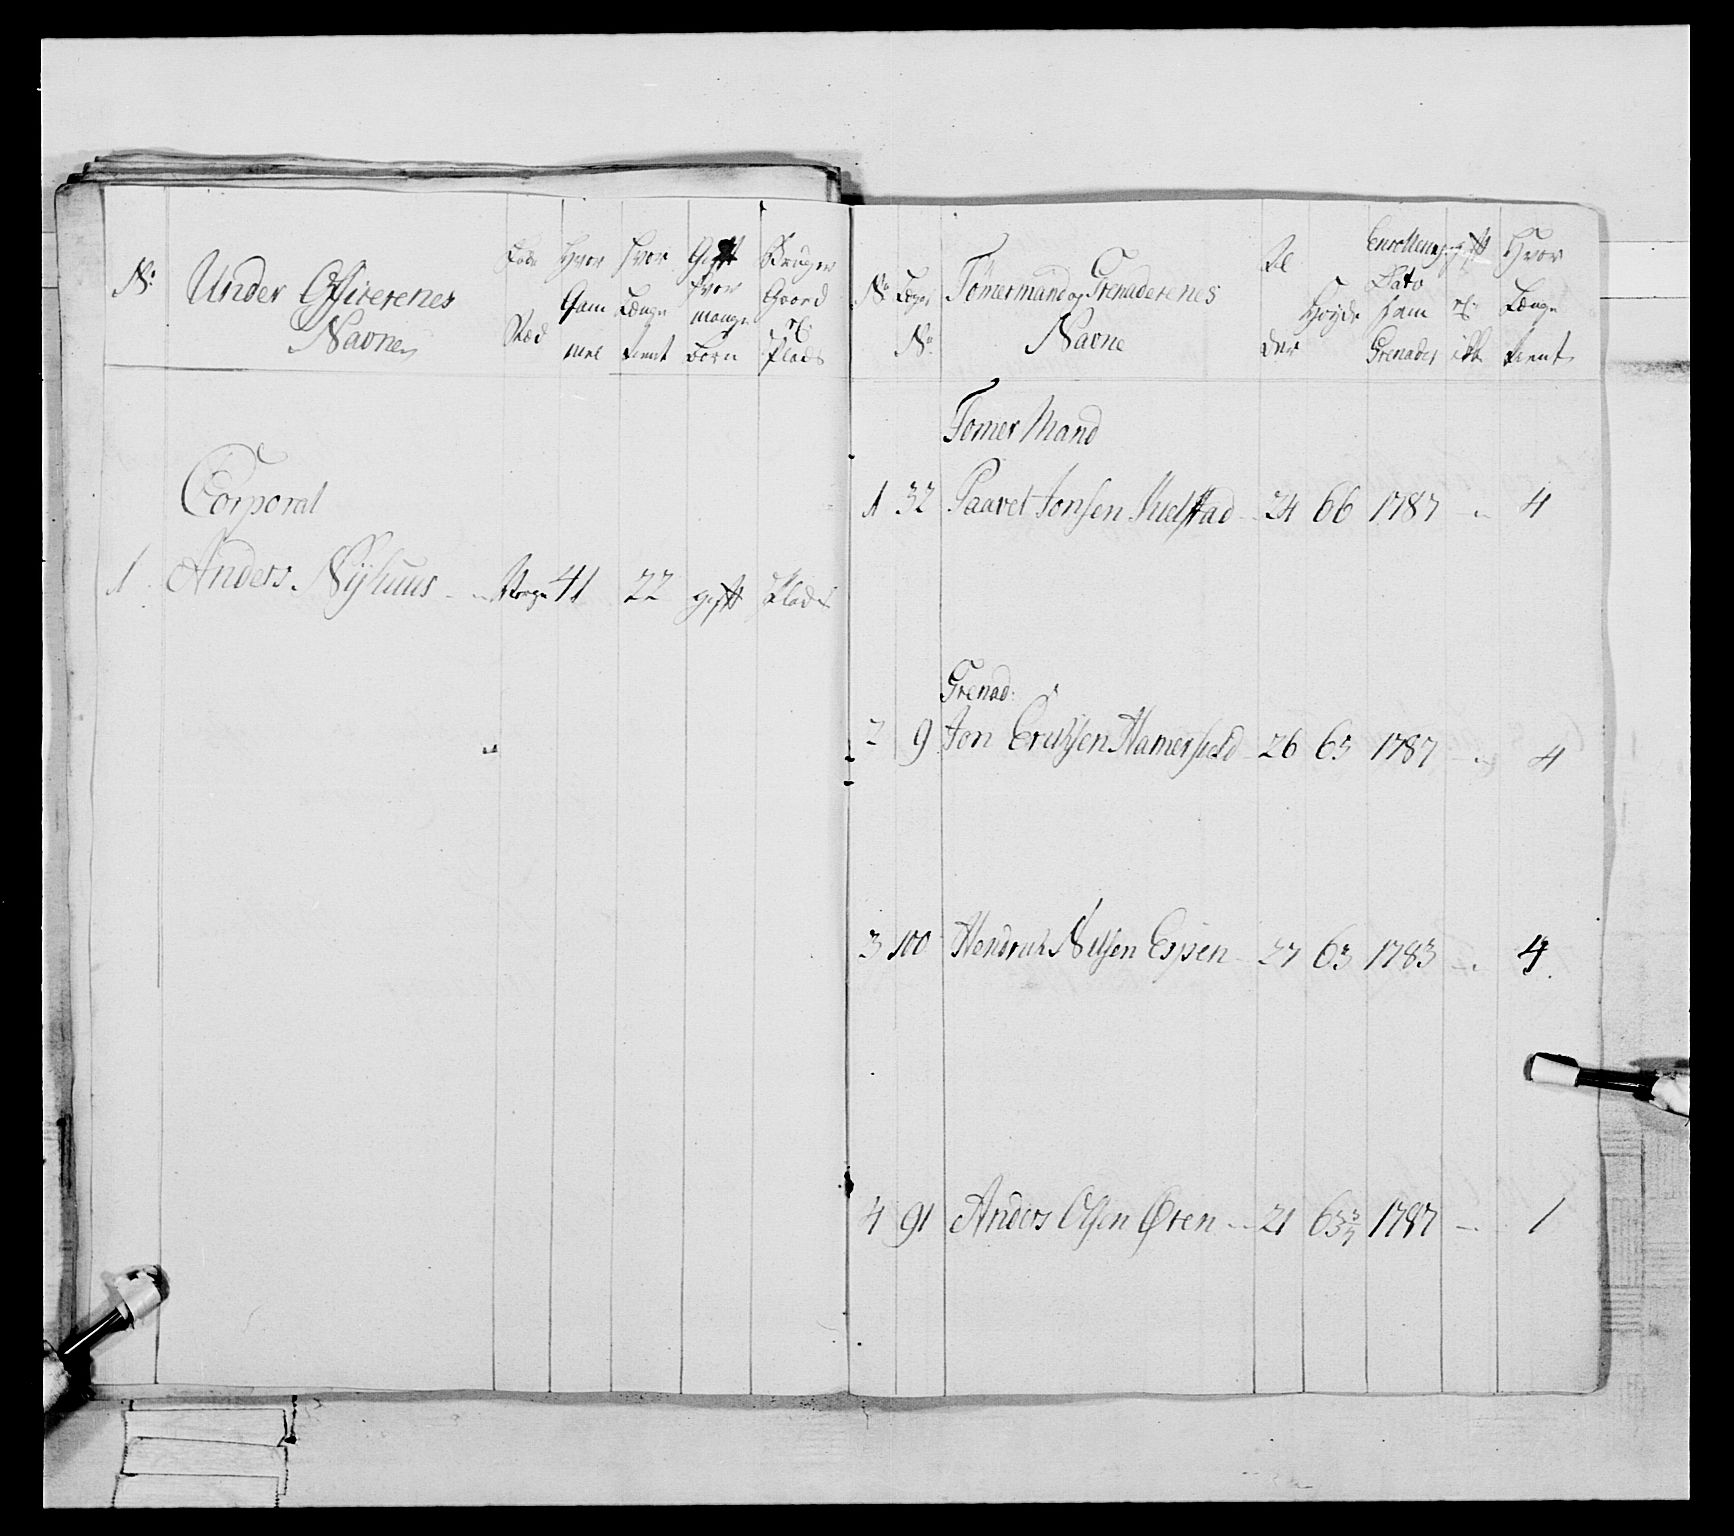 No
Under Officerenes
Navne
Føde
Stæd
Hvor
Gam
mel
Hvor
Længe
tient
Gift
Hvor
mange
Børn
Bruger
Gaard
el.
Plads
Corporal
1 Anders Nÿhuus Norge 41 22 gift Plads
No
Læges
No
Tømermand og Grenaderenes
Navne
Al
der
Høyde
Enrollering
Dato
som
Grenader
gift
el.
ikke
Hvor
Længe
tient
Tømer Mand
1 32 Paavel Jonsen 24 66 1787 4
Grenad:
2 9 Jon Eriksen 26 65 1787 4
3 100 Hendrich Nilsen Espen 27 63 1783 4
4 91 Anders Olsen Øren 21 63 1787 1